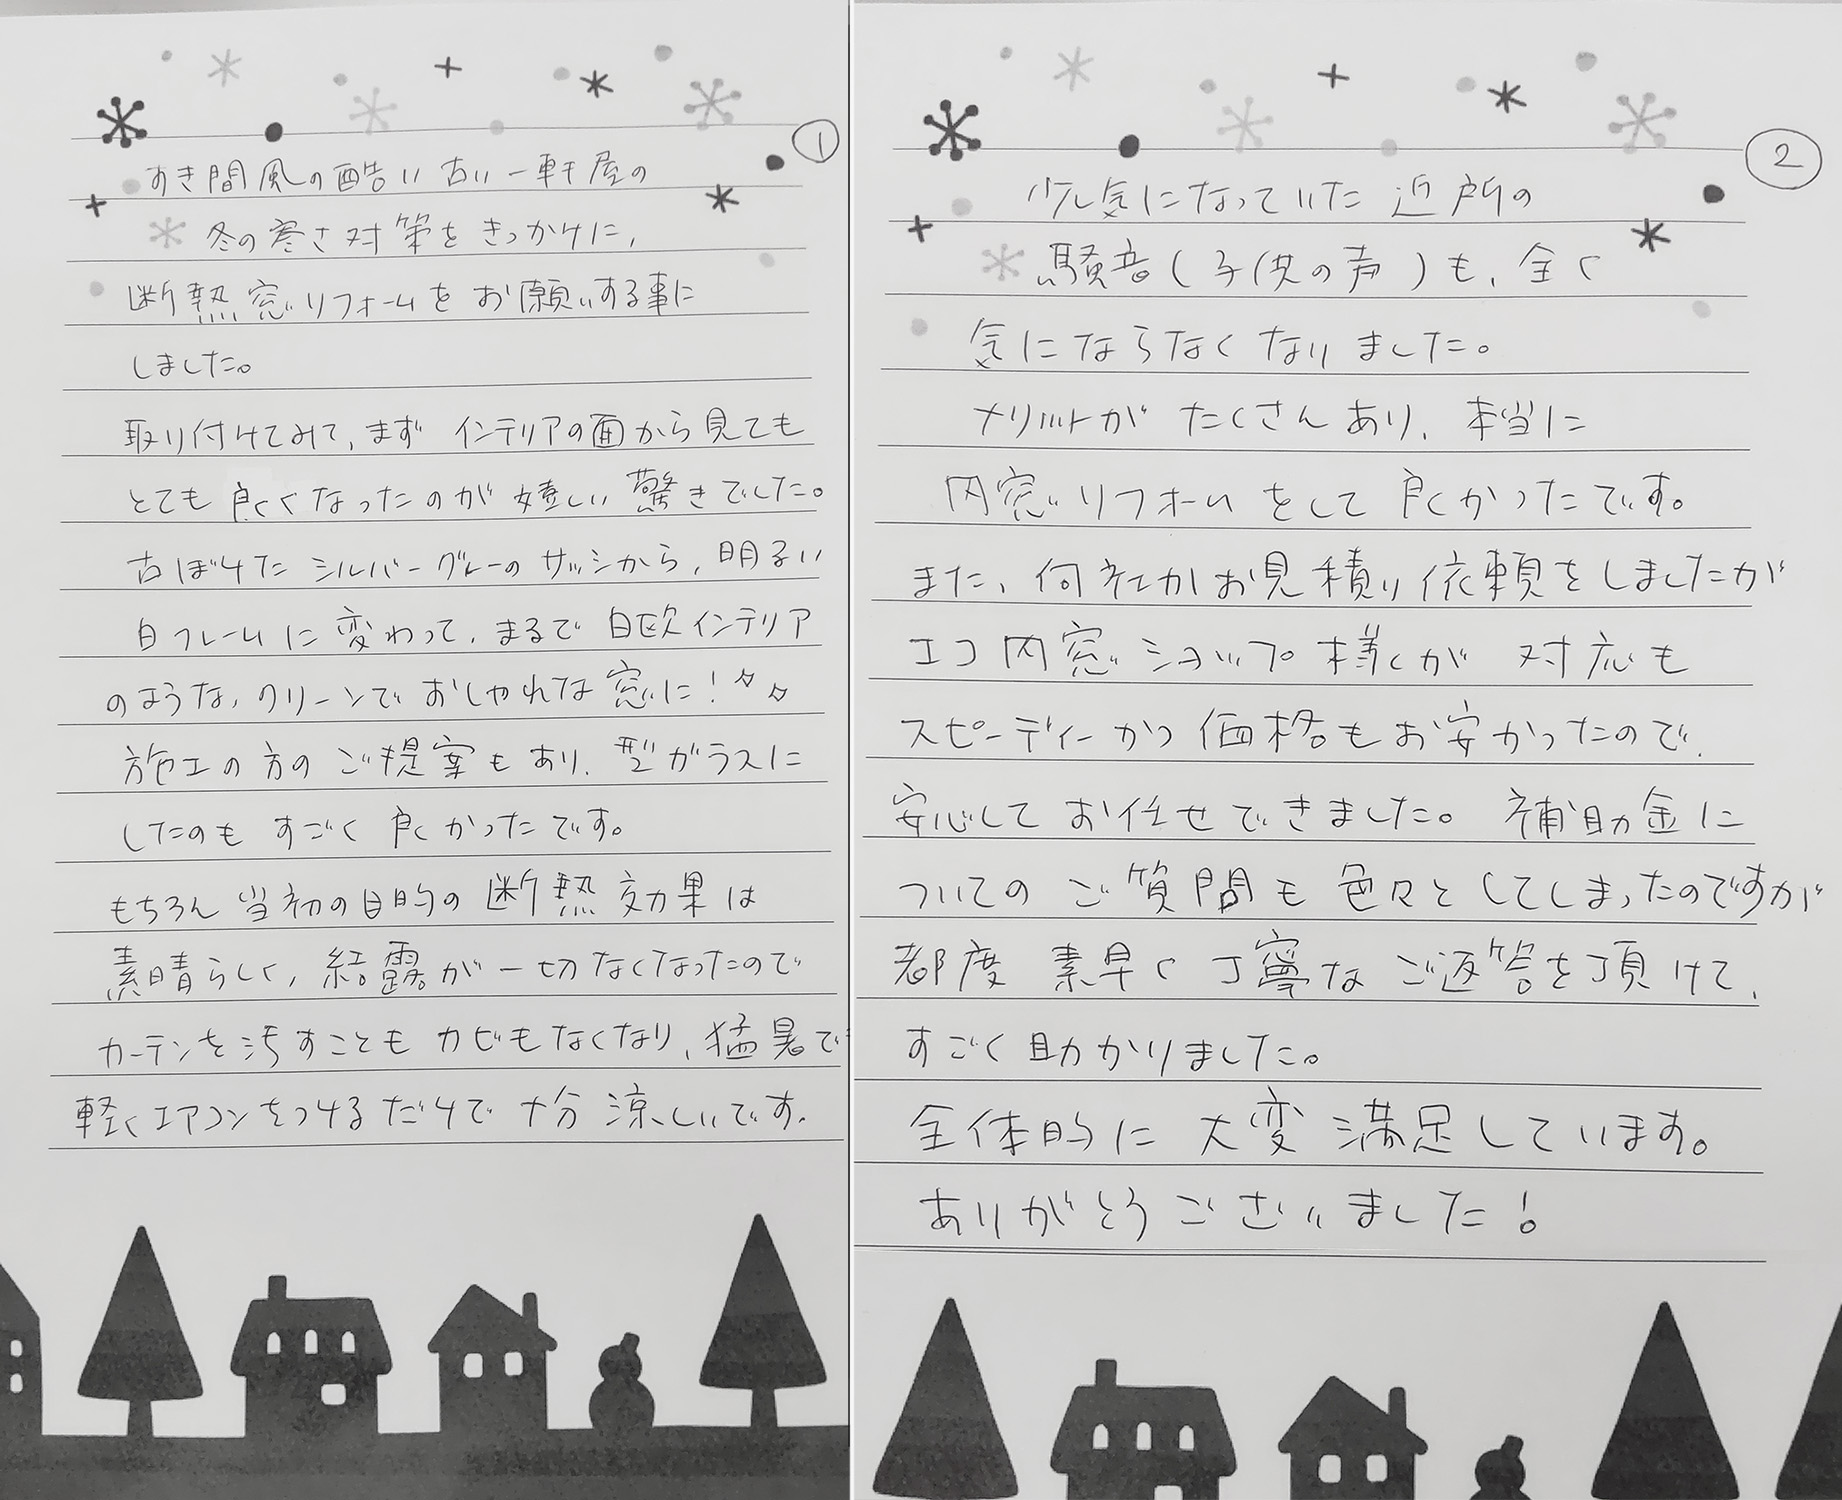 ①
すき間風の酷い古い一軒屋の
冬の寒さ対策をきっかけに、
断熱窓リフォームをお願いする事に
しました。
取り付けてみて、まず インテリアの面から見ても
とても良くなったのが嬉しい驚きでした。
古ぼけたシルバーグレーのサッシから、明るい
白フレームに変わって、まるで北欧インテリア
のような、クリーンでおしゃれな窓に!
施工の方のご提案もあり、型ガラスに
したのもすごく良かったです。
もちろん当初の目的の断熱効果は
素晴らしく、結露が一切なくなったので
カーテンを汚すこともカビもなくなり、猛暑で
軽くエアコンをつけるだけで十分涼しいです。
②
少し気になっていた近所の
騒音(子供の声)も、全く
気にならなくなりました。
メリットがたくさんあり、本当に
内窓リフォームをして良かったです。
また、何社かお見積り依頼をしましたが
エコ内窓ショップ様が対応も
スピーディーかつ価格もお安かったので、
安心してお任せできました。補助金に
ついてのご質問も色々としてしまったのですが
都度素早く丁寧なご返答を頂けて、
すごく助かりました。
全体的に大変満足しています。
ありがとうございました!